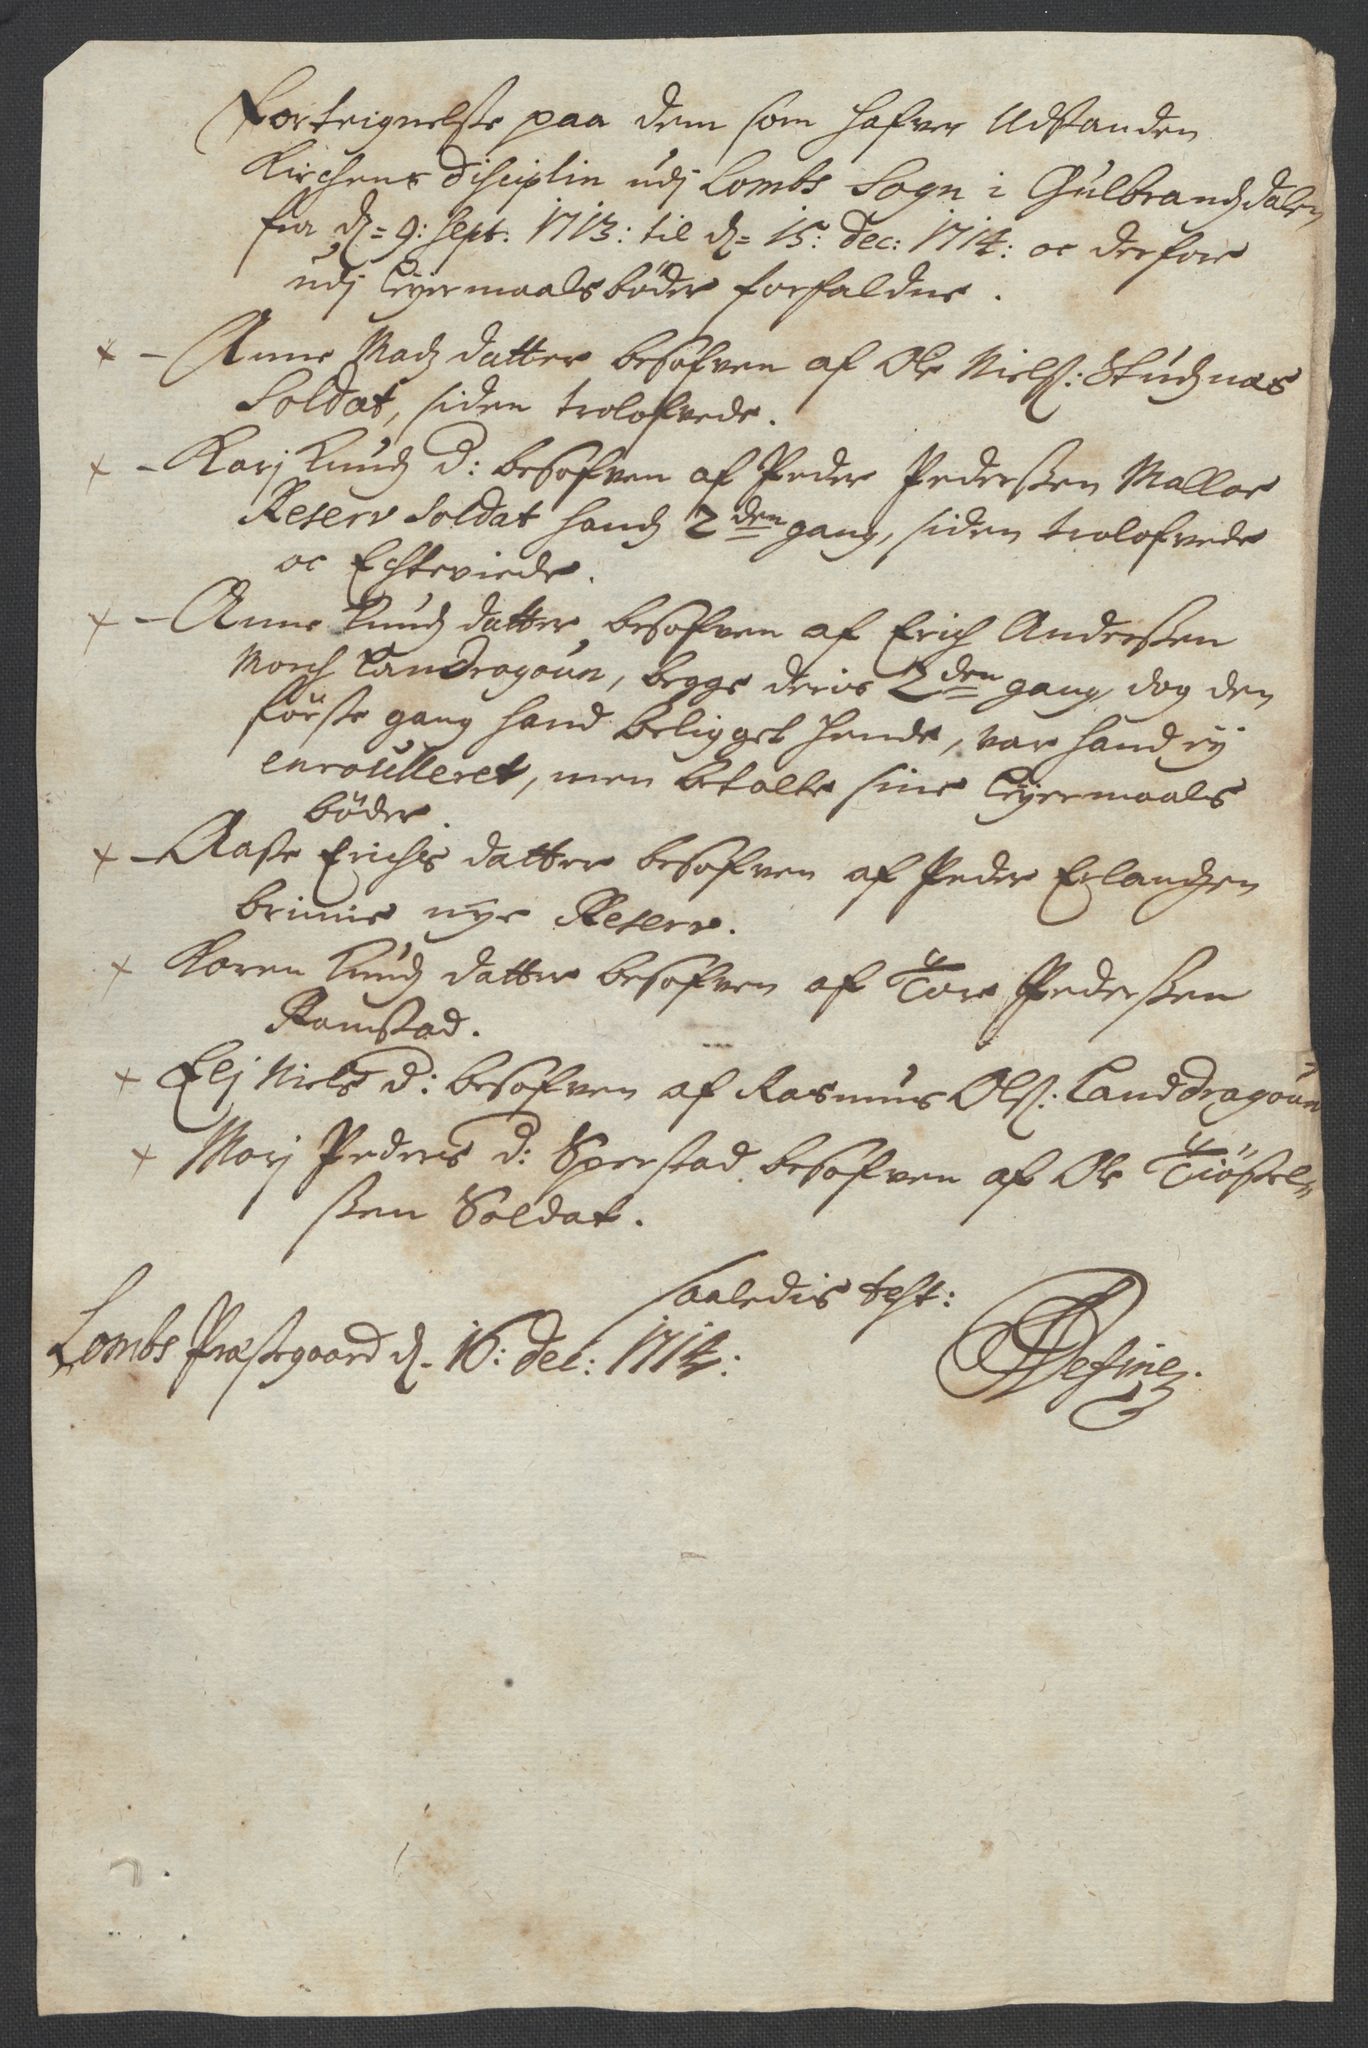 Forteignelse paa dem som hafver Udstanden
Kirchens disciplin udj Lombs Sogn i Gulbrandzdalen
fra d= 9: Sept: 1713: til d= 15: dec: 1714: oc derfore
udj Leyermaals bøder forfaldne.
× – Anne Madz datter besofven af Ole Niels: Studnæs
Soldat, siden trolofvede.
× – Karj Knudz d: besofven af Peder Pederssen Malloe
Reserv Soldat hands 2den gang, siden trolofvede
oc Echteviede.
× – Anne Knudz datter, besofven af Erich Anderssen
Morch Landragoun, begge deris 2den gang dog den
første gang hand beligget hende, var hand ej
enroulleret, men betalte sine Leyermaals
bøder.
× – Aaste Erichs datter besofven af Peder Erlandzen
brimie nye Reserv.
× Karen Knudz datter besofven af Tore Pederssen
Ramstad.
× Elj Niels d: besofven af Rasmus Ols: Landdragoun
× Marj Peders d: Sperstad besofven af Ole Tiøstel=
ssen Soldat.
saaledis test:
Lombs Præstegaard d. 16: dec: 1714: